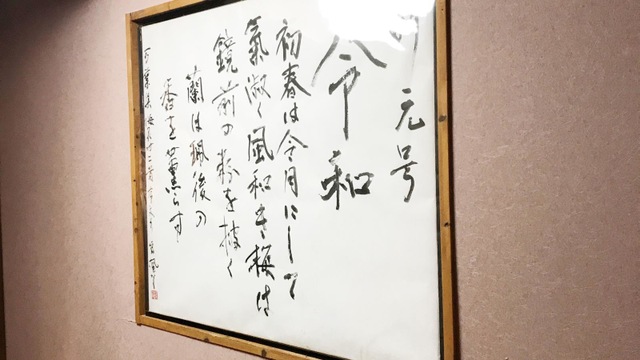 元号
令和
初春は令月にして
氣淑く風和き梅は
鏡前の粉を披く
蘭は珮後の
香を薫らす
万葉集